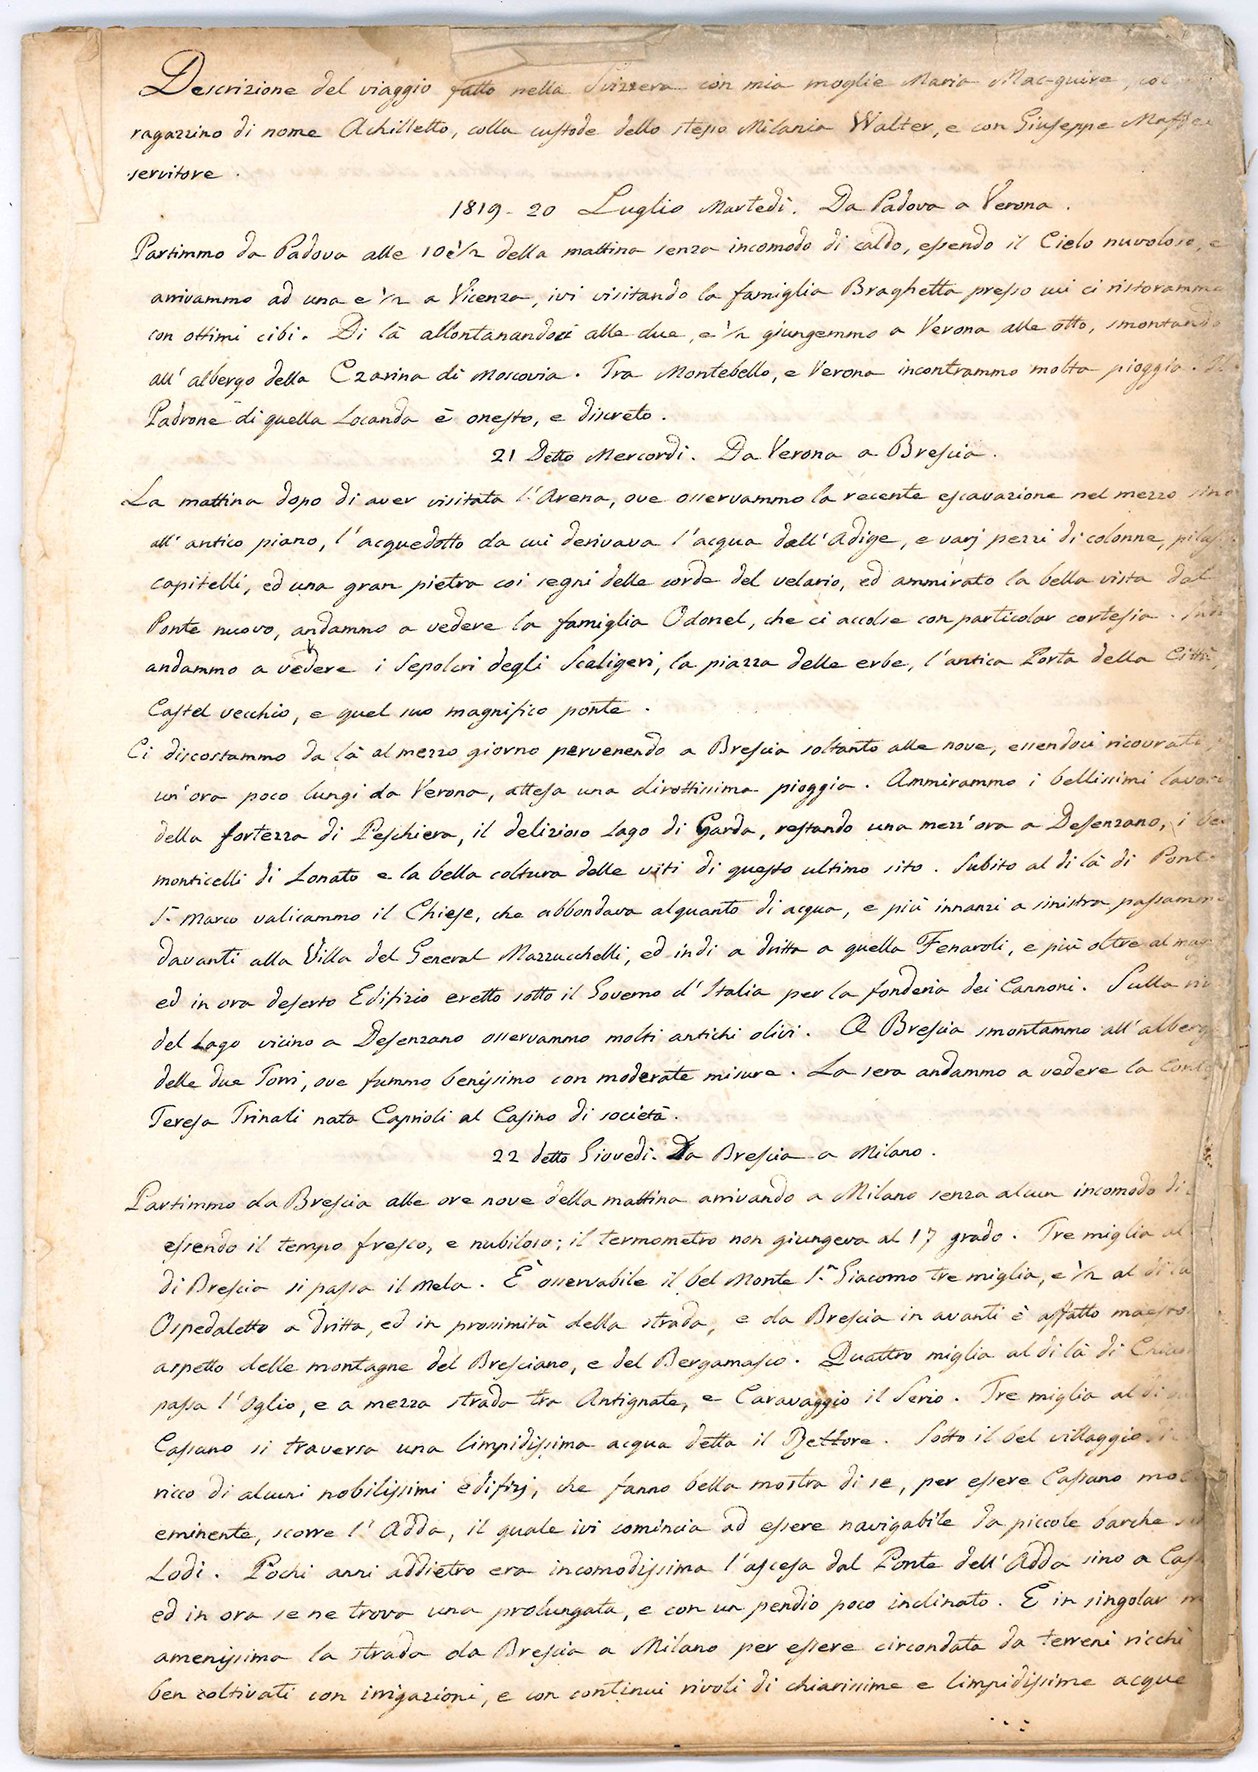 Descrizione del viaggio fatto nella Svizzera con mia moglie Maria Mac-guire, col
ragazzino di nome Achilletto, colla custode dello stesso Milania Walter, e con Giuseppe
servitore.
1819 - 20 Luglio Martedì. Da Padova a Verona.
Partimmo da Padova alle 10 e 1/2 della mattina senza incomodo di caldo, essendo il Cielo nuvoloso, e
arrivammo ad una e 1/2 a Vicenza, ivi visitando la famiglia Braghetta presso cui ci ristorammo
con ottimi cibi. Di là allontanandoci alle due, e 1/2 giungemmo a Verona alle otto, smontando
all'albergo della Czarina di Moscovia. Tra Montebello, e Verona incontrammo molta pioggia. Il
Padrone di quella Locanda è onesto, e discreto.
21 Detto Mercordì. Da Verona a Brescia.
La mattina dopo di aver visitata l'Arena, ove osservammo la recente escavazione nel mezzo sino
all'antico piano, l'acquedotto da cui derivava l'acqua dall'Adige, e varj pezzi di colonne,
capitelli, ed una gran pietra coi segni delle corde del velario, ed ammirato la bella vista dal
Ponte nuovo, andammo a vedere la famiglia Odonel, che ci accolse con particolar cortesia.
andammo a vedere i Sepolcri degli Scaligeri, la piazza delle erbe, l'antica Porta della Città,
Castel vecchio, e quel suo magnifico ponte.
Ci discostammo da là al mezzo giorno pervenendo a Brescia soltanto alle nove, essendoci ricovrati
un'ora poco lungi da Verona, attesa una dirottissima pioggia. Ammirammo i bellissimi lavori
della fortezza di Peschiera, il delizioso Lago di Garda, restando una mezz'ora a Desenzano, i
monticelli di Lonato e la bella coltura delle viti di questo ultimo sito. Subito al di là di Ponte
S.n Marco valicammo il Chiese, che abbondava alquanto di acqua, e più innanzi a sinistra passammo
davanti alla Villa del General Mazzucchelli, ed indi a dritta a quella Fenaroli, e più oltre al
ed in ora deserto Edifizio eretto sotto il Governo d'Italia per la fonderia dei Cannoni. Sulla
del Lago vicino a Desenzano osservammo molti antichi olivi. A Brescia smontammo all'albergo
delle due Torri, ove fummo benissimo con moderate misure. La sera andammo a vedere la
Teresa Trinali nata Caprioli al Casino di società.
22 detto Giovedì. Da Brescia a Milano.
Partimmo da Brescia alle ore nove della mattina arrivando a Milano senza alcun incomodo di
essendo il tempo fresco, e nubiloso; il termometro non giungeva al 17 grado. Tre miglia al
di Brescia si passa il Mela. È osservabile il bel Monte S.n Giacomo tre miglia, e 1/2 al di là
Ospedaletto a dritta, ed in prossimità della strada, e da Brescia in avanti è affatto maestoso
aspetto delle montagne del Bresciano, e del Bergamasco. Quattro miglia al di là di
passa l'Oglio, e a mezza strada tra Antignate, e Caravaggio il Serio. Tre miglia al di
Cassano si traversa una limpidissima acqua detta il Rettore. Sotto il bel villaggio di
ricco di alcuni nobilissimi edifizj, che fanno bella mostra di se, per essere Cassano
eminente, scorre l'Adda, il quale ivi comincia ad essere navigabile da piccole barche
Lodi. Pochi anni addietro era incomodissima l'ascesa dal Ponte dell'Adda sino a
ed in ora se ne trova una prolungata, e con un pendio poco inclinato. È in singolar
amenissima la strada da Brescia a Milano per essere circondata da terreni ricchi
ben coltivati con irrigazioni, e con continui rivoli di chiarissime e limpidissime acque